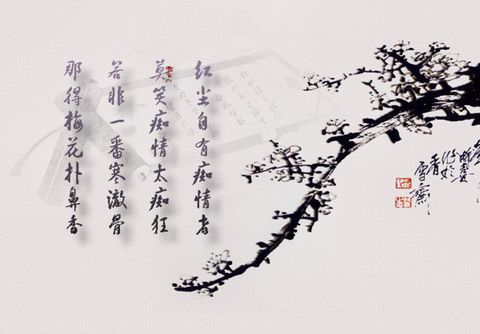 红尘自有痴情者
莫笑痴情太痴狂
若非一番寒澈骨
那得梅花扑鼻香